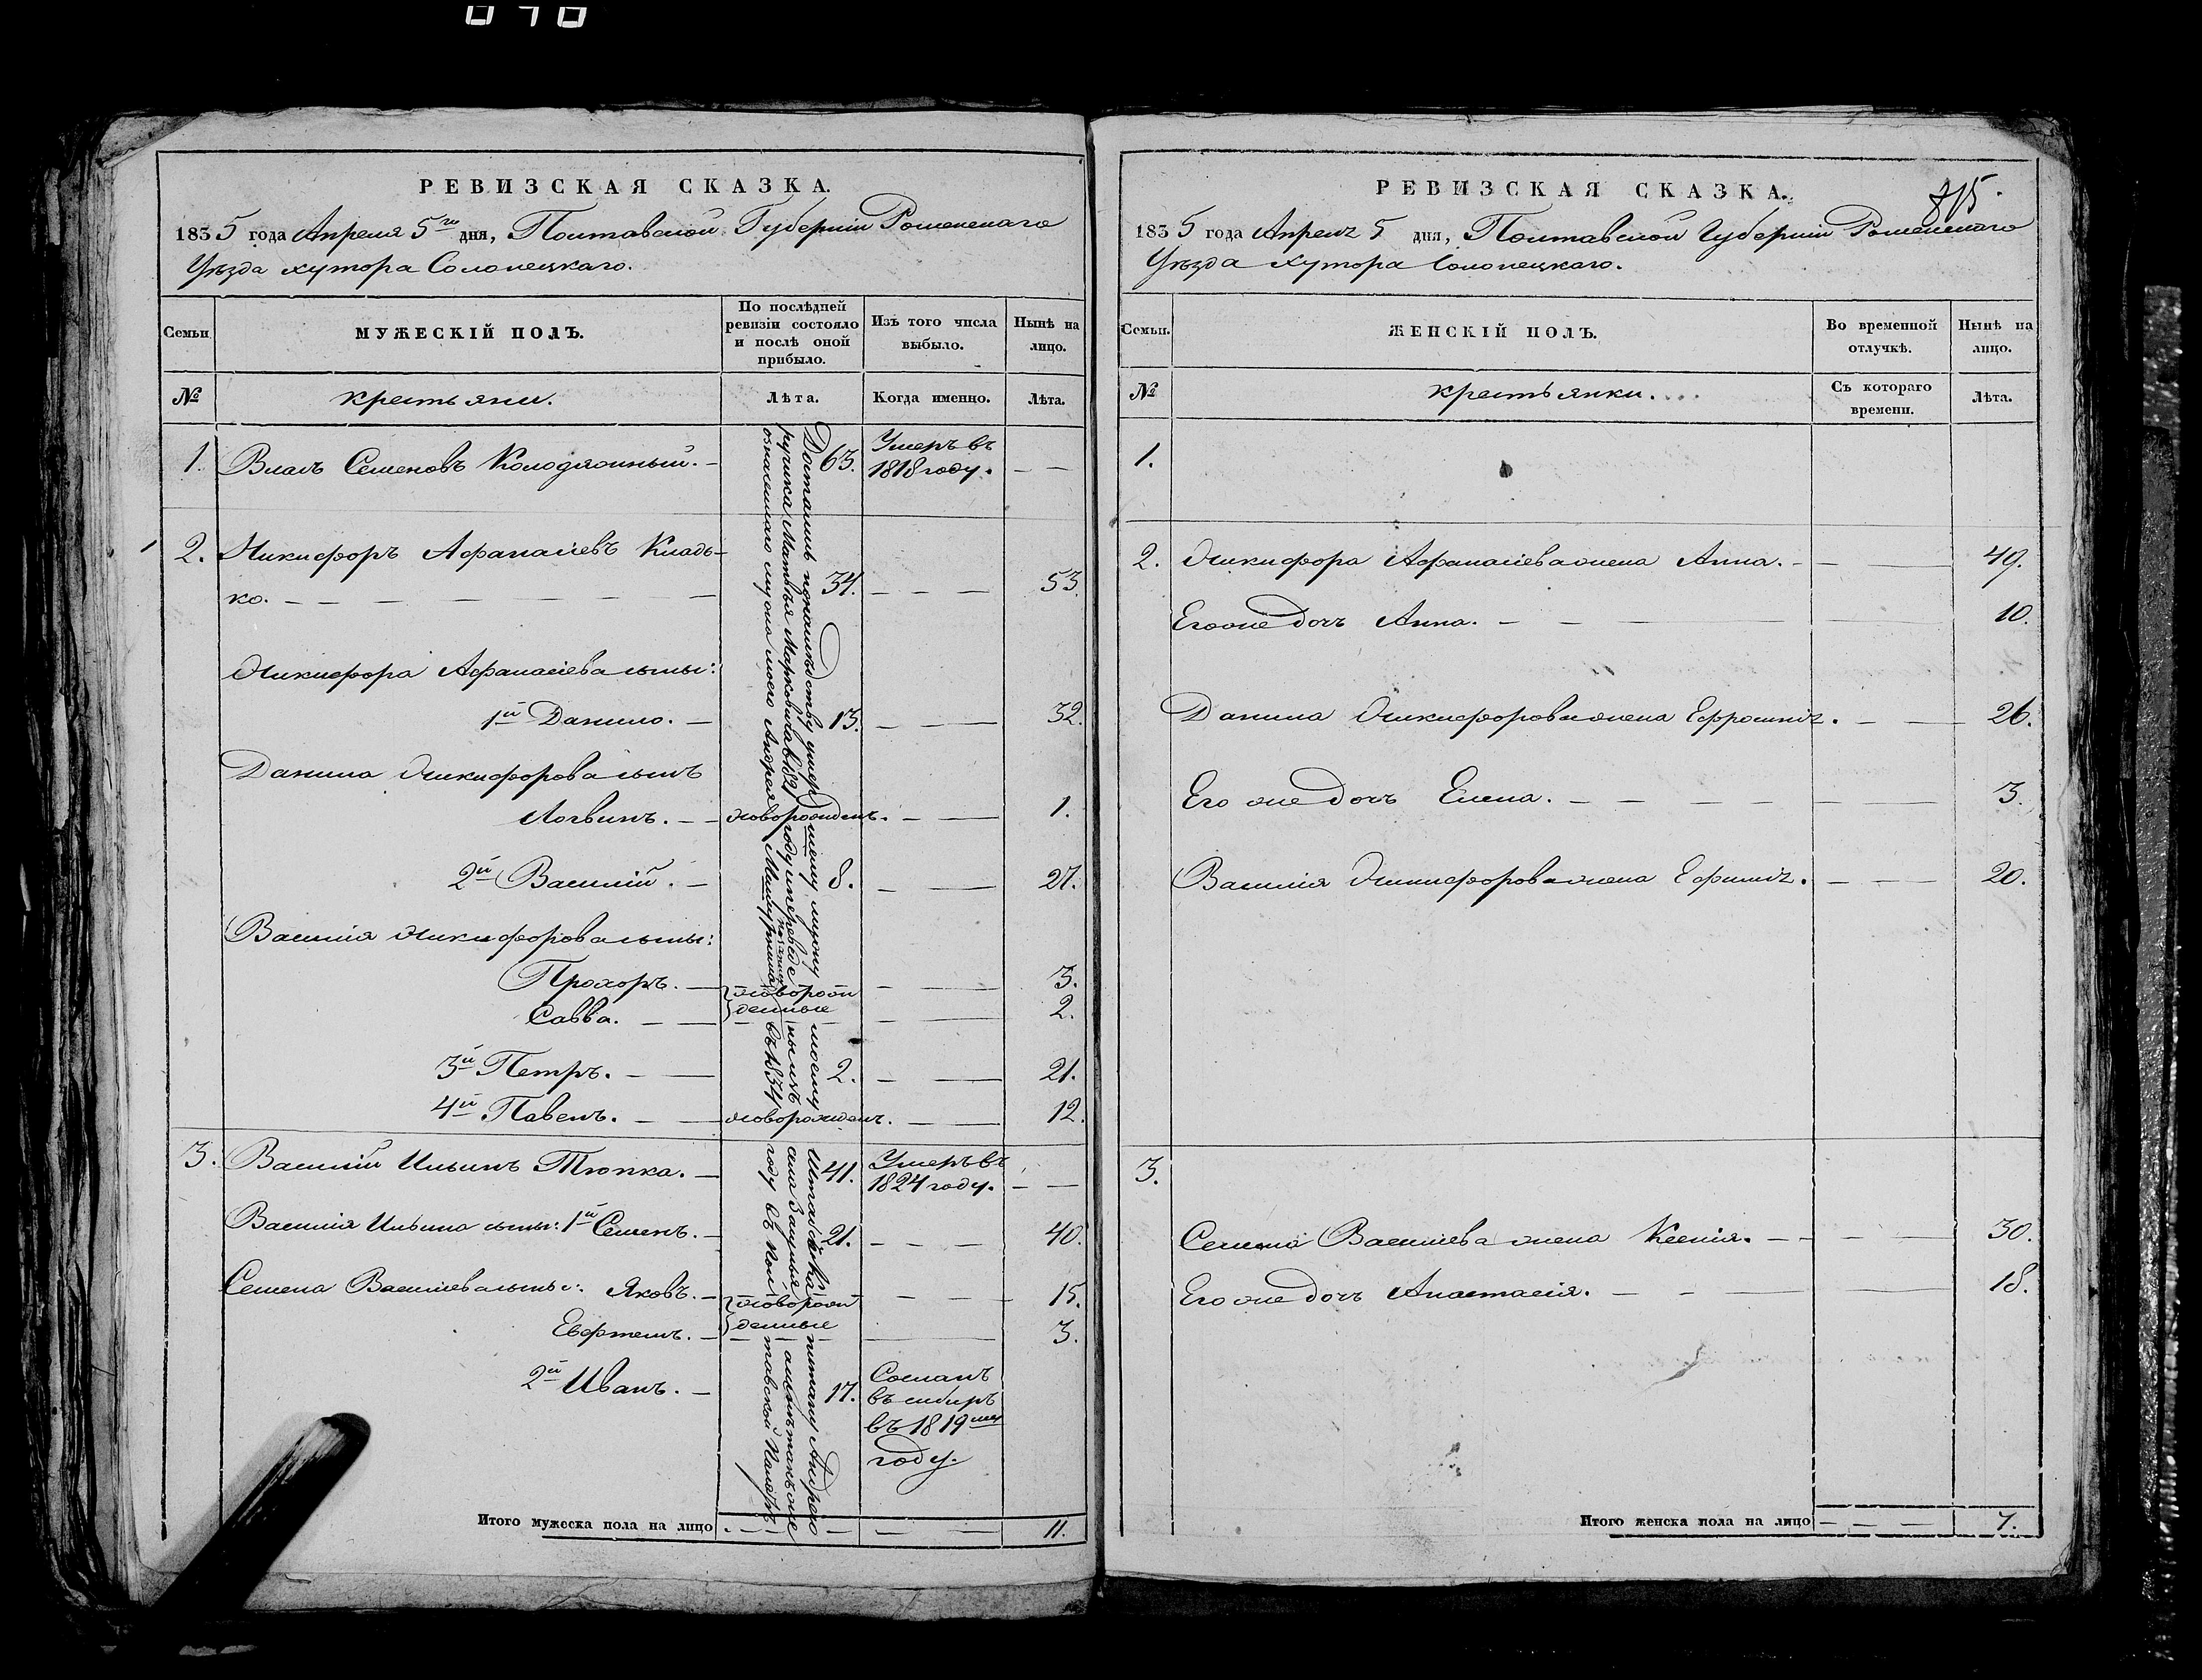 РЕВИЗСКАЯ СКАЗКА.
1835 года Апреля 5го дня, Полтавской Губернии Роменскаго
Уѣзда хутора Солопецкаго.
Семьи
МУЖЕСКІЙ ПОЛЪ.
По послѣдней ревизіи состояло и послѣ оной прибыло.
Изъ того числа выбыло.
Нынѣ на лицо.
№
крестьяни.
Лѣта.
Когда именно.
Лѣта.
1. Власъ Семеновъ Колодяжный. – 63. Умеръ въ 1818 году. – –
2. Никифоръ Афанасіевъ Кладь-
ко. – – – 34. – – – 53.
Никифора Афанасіева сыны:
1й Данило. – 13. – – 32.
Данила Никифорова сынъ
Логвинъ. – – новорожденъ. – – 1.
2й Василій. – 8. – – 27.
Василія Никифорова сыны:
Прохоръ. – новорож – – 3.
Савва. – – денные – – 2.
3й Петръ. – – 2. – – 21.
4й Павелъ. – – новорожденъ. – – 12.
3. Василій Ильинъ Тюпка. – 41. Умеръ въ 1824 году. – –
Василія Ильина сыны: 1й Семенъ. – 21. – – – 40.
Семена Василіева сыны: Яковъ. – новорож – – – 15.
Евфтей. – денные – 3.
2й Иванъ. – 17. Сосланъ
въ сибирь
въ 1819му
году.
Достались по наслѣдству умершему мужу моему Штабсъ Капитану Андрею
ручика Матвѣя Марковича въ 1821 году и переведены изъ села
означеннаго мужа моего Андрея въ 1834 году въ
Итого мужеска пола на лицо – – – – – 11.
РЕВИЗСКАЯ СКАЗКА.
815.
1835 года Апреля 5 дня, Полтавской Губерніи Роменскаго
Уѣзда хутора Солопецкаго.
Семьи.
ЖЕНСКІЙ ПОЛЪ.
Во временной отлучкѣ.
Нынѣ на лицо.
№
крестьянки.
Съ котораго времени.
Лѣта.
1.
2. Никифора Афанасіева жена Анна. – – 49.
Его же дочь Анна. – – – 10.
Данила Никифорова жена Ефросинія. – – 26.
Его же дочь Елена. – – – 3.
Василія Никифорова жена Ефимія. – – 20.
3.
Семена Василіева жена Ксенія. – – – 30.
Его же дочь Анастасія. – – – 18.
Итого женска пола на лицо – – – 7.